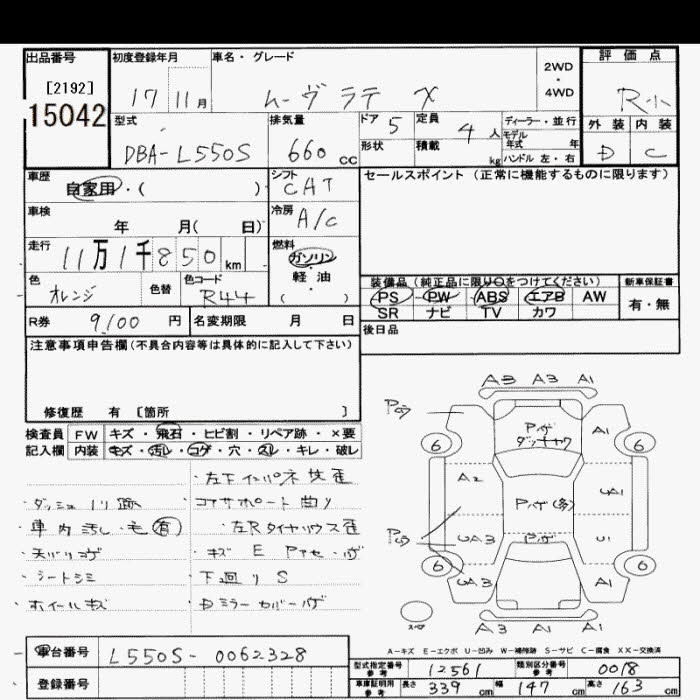 出品番号 初度登録年月 車名・グレード 2WD・4WD 評価点
[2192]
15042
17 11月 ムーヴ ラテ X R小
型式 排気量 ドア 5 定員 4人 ディーラー・並行 外装 内装
モデル年式 年
DBA-L550S 660cc 形状 積載 kg ハンドル 左・右 D C
車歴 シフト セールスポイント (正常に機能するものに限ります)
自家用・( ) CAT
車検 冷房
年 月( 日) A/C
走行 燃料
11万1千850km ガソリン・軽油
( )
色 色替 色コード 装備品 (純正品に限り○をつけてください) 新車保証書
オレンジ R44 PS PW ABS エアB AW 有・無
SR ナビ TV カワ
R券 9,100円 名変期限 月 日 後日品
注意事項申告欄(不具合内容等は具体的に記入して下さい)
修復歴 有 [箇所 ]
検査員 FW キズ・飛石・ヒビ割・リペア跡・×要
記入欄 内装 キズ・汚レ・コゲ・穴・スレ・キレ・破レ
・左フインパネ 歪
・ダッシュ ノリ跡 ・コアサポート曲り
・車内汚レ・毛(有) ・左Rタイヤハウス歪
・天バリコゲ ・キズ E
・シートシミ ・下回りS
・ホイールキズ ・Dミラーカバーハゲ
A3 A3 A1
Pハゲ
6 A1 6
A2 Pハゲ(多) UA1
UA3 Pハゲ U1
6 UA3 A1 6
A3 A1
A-キズ E-エクボ U-凹み W-補修跡 S-サビ C-腐食 XX-交換済
車台番号 L550S-0062328
型式指定番号 参考 12561 類別区分番号 参考 0018
登録番号 車庫証明用 参考 長さ 339cm 幅 147cm 高さ 163cm